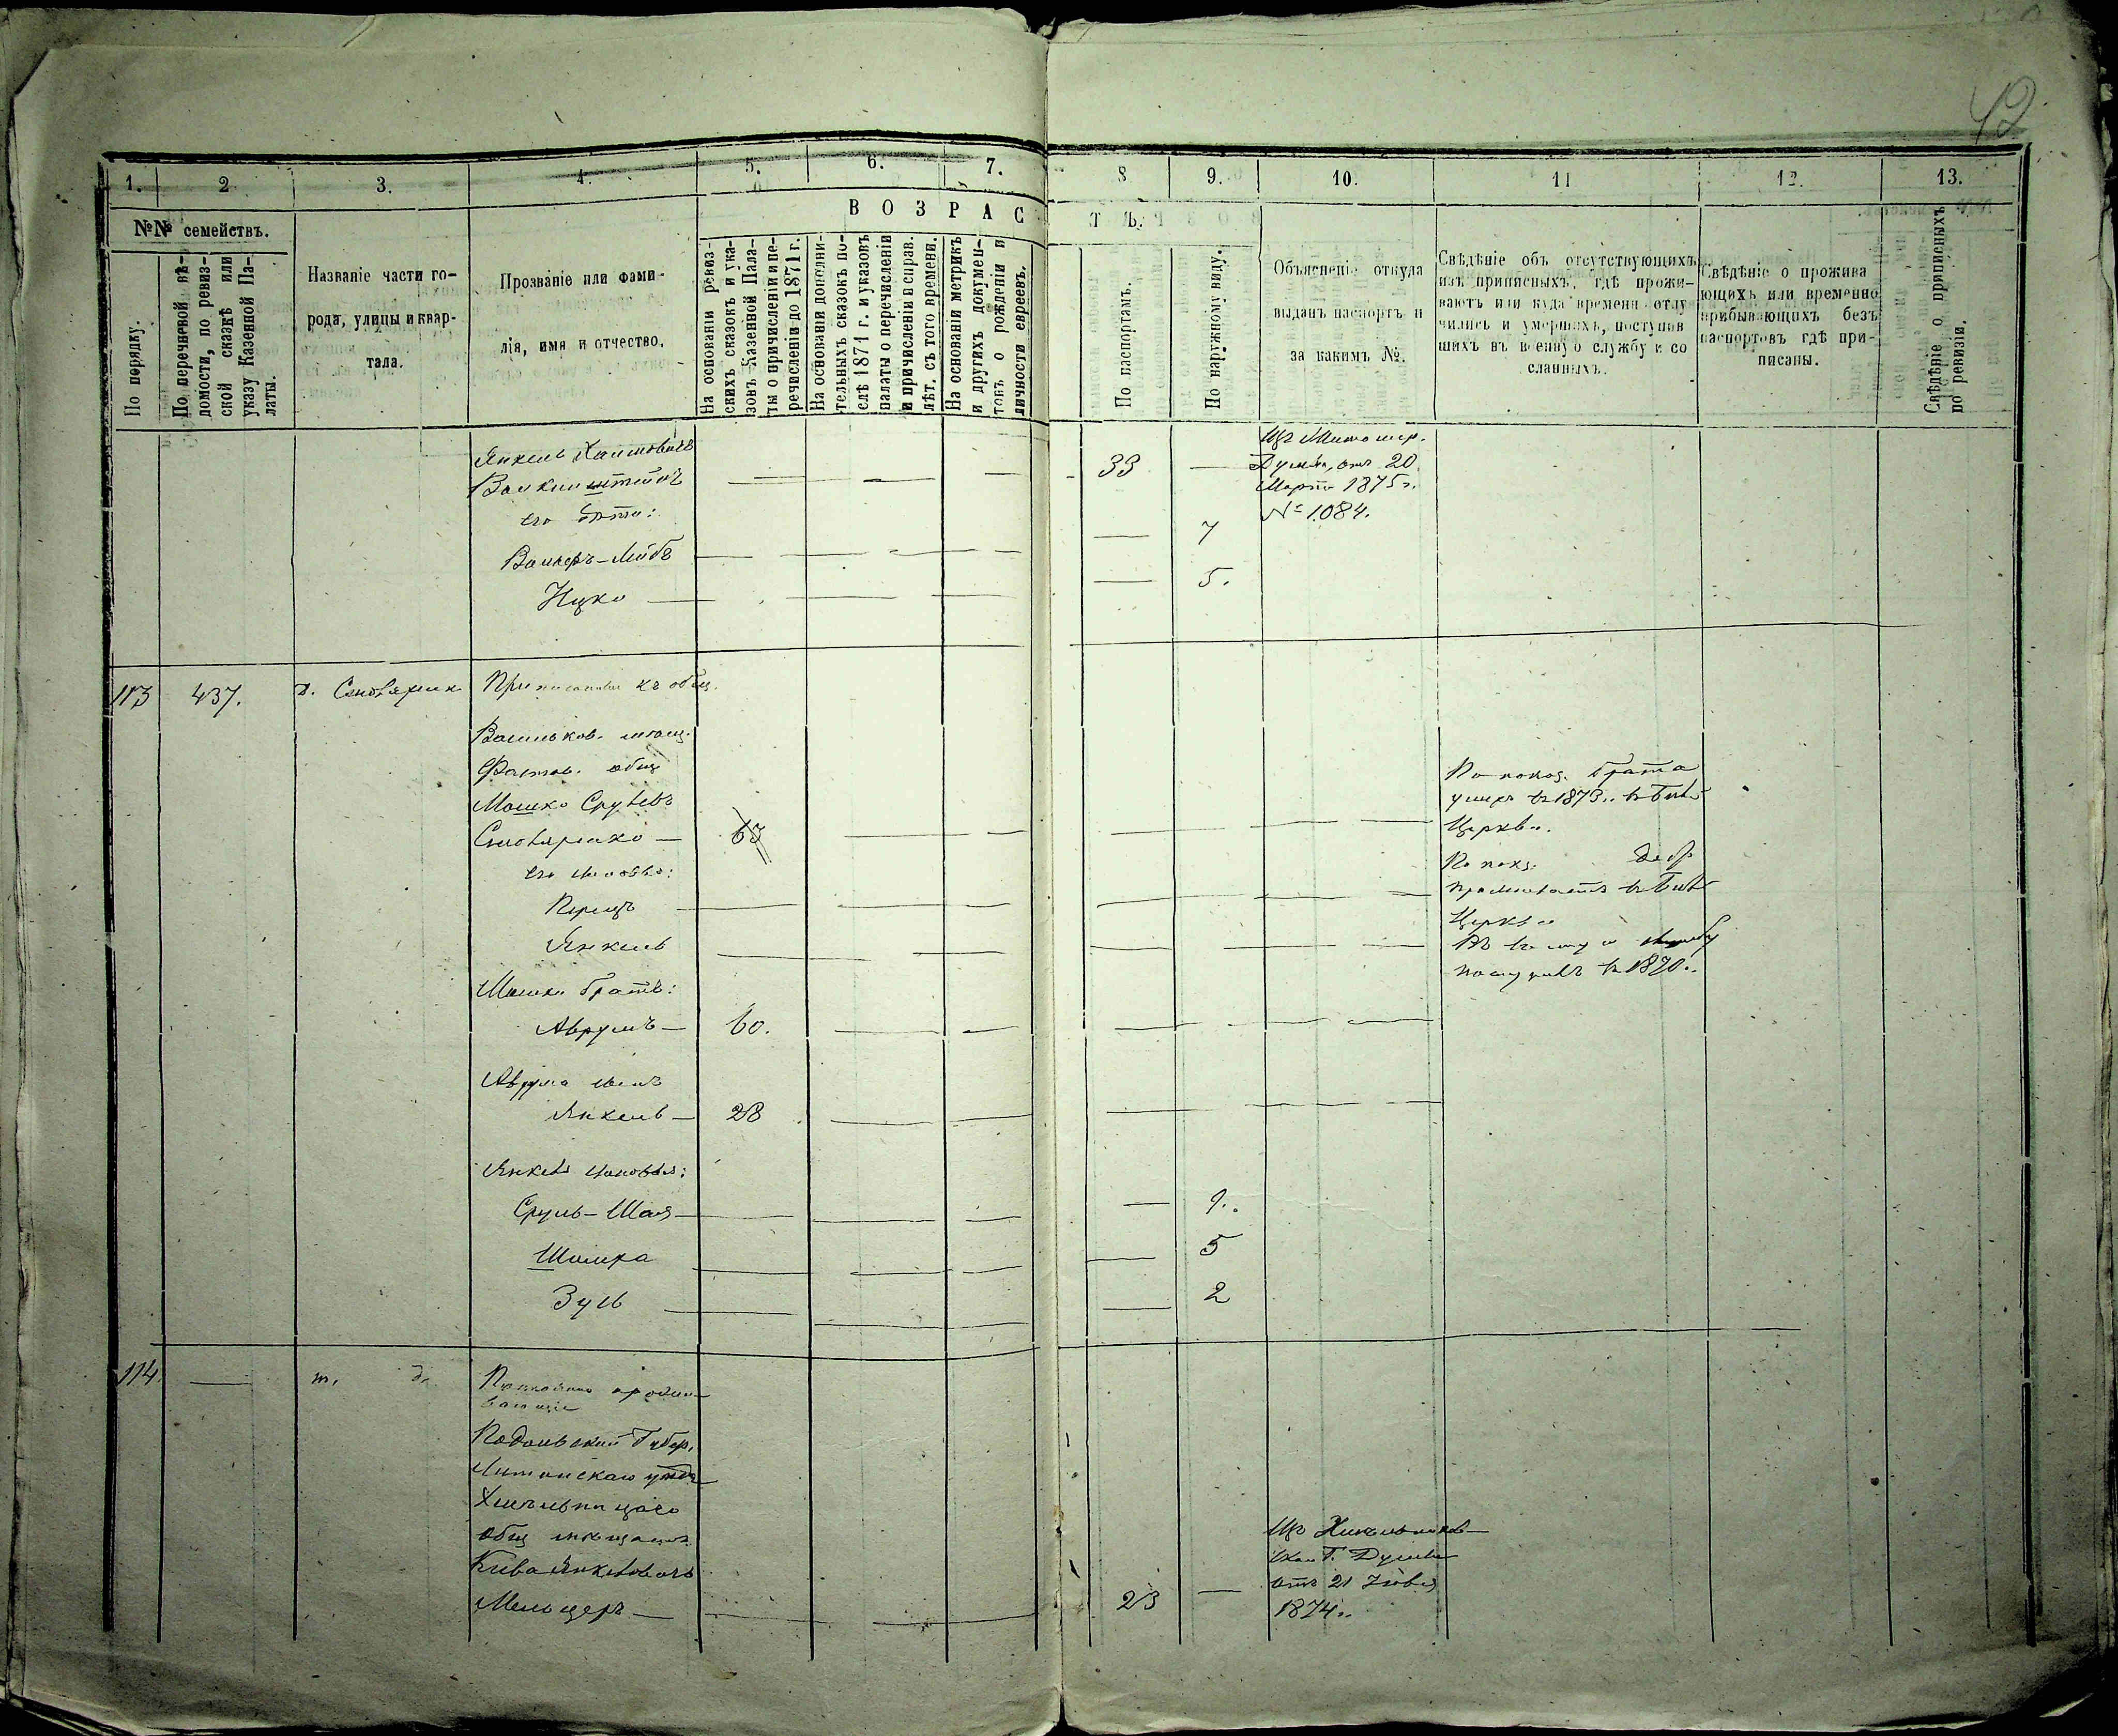 42
1. 2 3. 4. 5. 6. 7. 8 9. 10. 11 12. 13.
№№ семействъ.
По порядку.
По перечневой вѣ-
домости, по ревиз-
ской сказкѣ или
указу Казенной Па-
латы.
Названіе части го-
рода, улицы и квар-
тала.
Прозваніе или фами-
лія, имя и отчество.
ВОЗРАСТЪ.
На основаніи ревиз-
скихъ сказокъ и ука-
зовъ Казенной Пала-
ты о причисленіи и пе-
речисленіи до 1871 г.
На основаніи дополни-
тельныхъ сказокъ по-
слѣ 1871 г. и указовъ
палаты о перечисленіи
и причисленіи и справ.
лѣт. съ того времени.
На основаніи метрикъ
и другихъ докумен-
товъ о рожденіи и
личности евреевъ.
По паспортамъ.
По наружному виду.
Объясненіе откуда
выданъ паспортъ и
за какимъ №.
Свѣдѣніе объ отсутствующихъ
изъ приписныхъ, гдѣ прожи-
ваютъ или куда времени отлу
чились и умершихъ, поступив
шихъ въ военную службу и со
сланныхъ.
Свѣдѣніе о прожива
ющихъ или временно
прибывающихъ безъ
паспортовъ гдѣ при-
писаны.
Свѣдѣніе о приписныхъ
по ревизіи.
Янкель Хаимовичъ
33
Изъ Житомир.
Думы, отъ 20
Марта 1875 г.
№ 1084.
его дѣти:
7
Ицко
5.
113 437. д.
Приписанные къ общ.
Васильков. мѣщ.
Фастов. общ
Мошко Срулевъ
63
По показ. брата
умеръ въ 1873 г. въ Бѣлой
Церкви.
его сыновья:
Перецъ
По показ.
проживаетъ въ Бѣлой
Церкви
Янкель
Въ военную службу
поступилъ въ 1870 г.
Мошки братъ:
Аврумъ — 60.
Аврума сынъ
Янкель — 28
Янкеля сыновья:
Сруль-Шая 9.
Шимха 5
Зусь 2
114 т. д.
Постоянно прожи-
вающіе
Подольской Губер.
Литинскаго уѣзда
Хмельницкаго
общ мѣщанинъ
Кива Янкелевичъ
Мельцеръ —
23
Изъ Хмельников-
ской Г. Думы
отъ 21
1874 г.